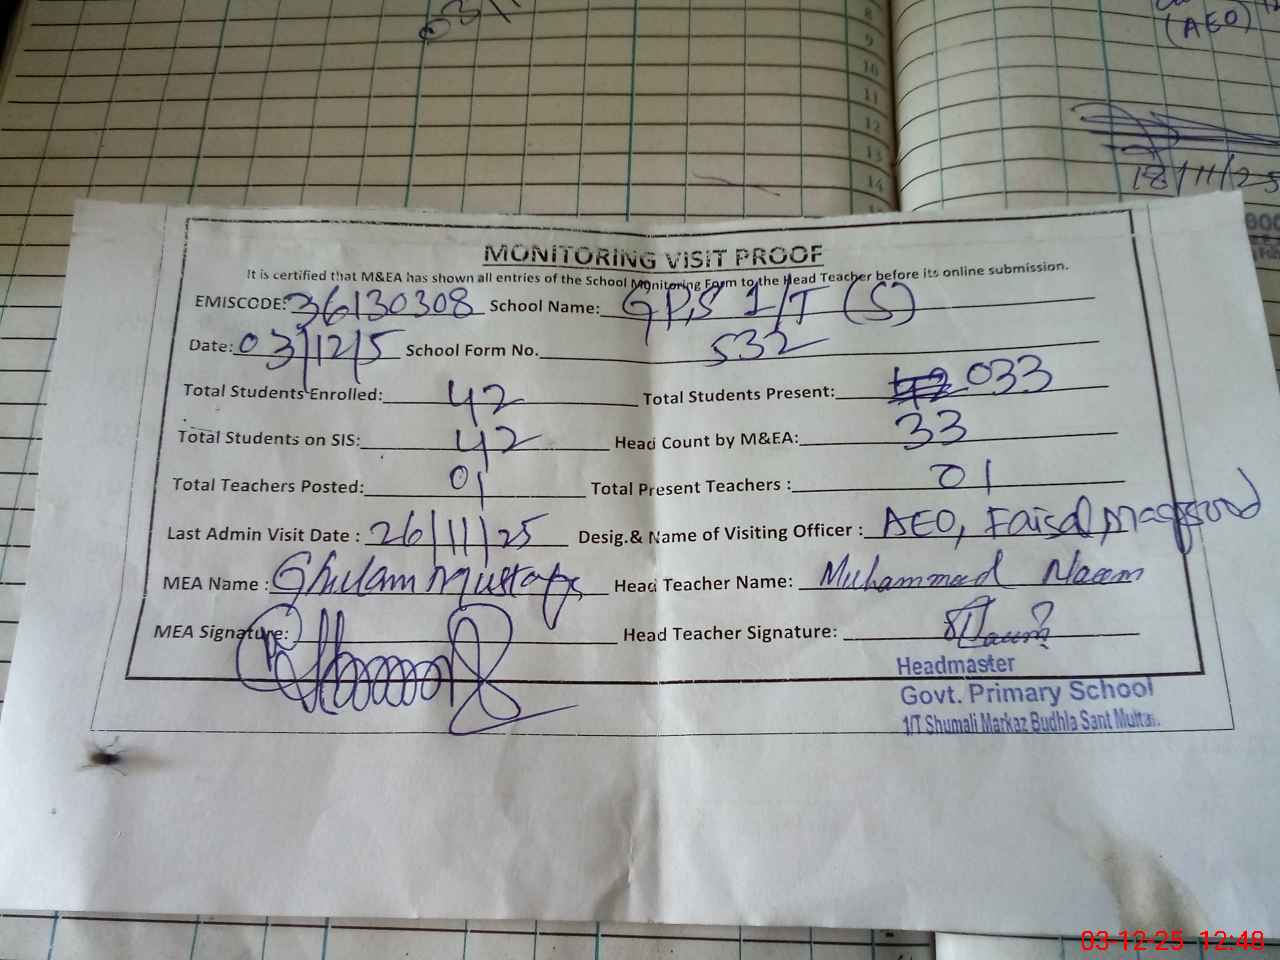 (AEO)
8
9
10
11
12
13
14
18/11/25
MONITORING VISIT PROOF
It is certified that M&EA has shown all entries of the School Monitoring Form to the Head Teacher before its online submission.
EMISCODE: 36130308 School Name: GPS 1/T (S)
Date: 03/12/5 School Form No. 532
Total Students Enrolled: 42 Total Students Present: 033
Total Students on SIS: 42 Head Count by M&EA: 33
Total Teachers Posted: 01 Total Present Teachers : 01
Last Admin Visit Date : 26/11/25 Desig.& Name of Visiting Officer : AEO, Faisal Maqsood
MEA Name : Ghulam Mustafa Head Teacher Name: Muhammad Naeem
MEA Signature: Head Teacher Signature:
Headmaster
Govt. Primary School
1/T Shumali Markaz Budhla Sant Multan.
03-12-25 12:48